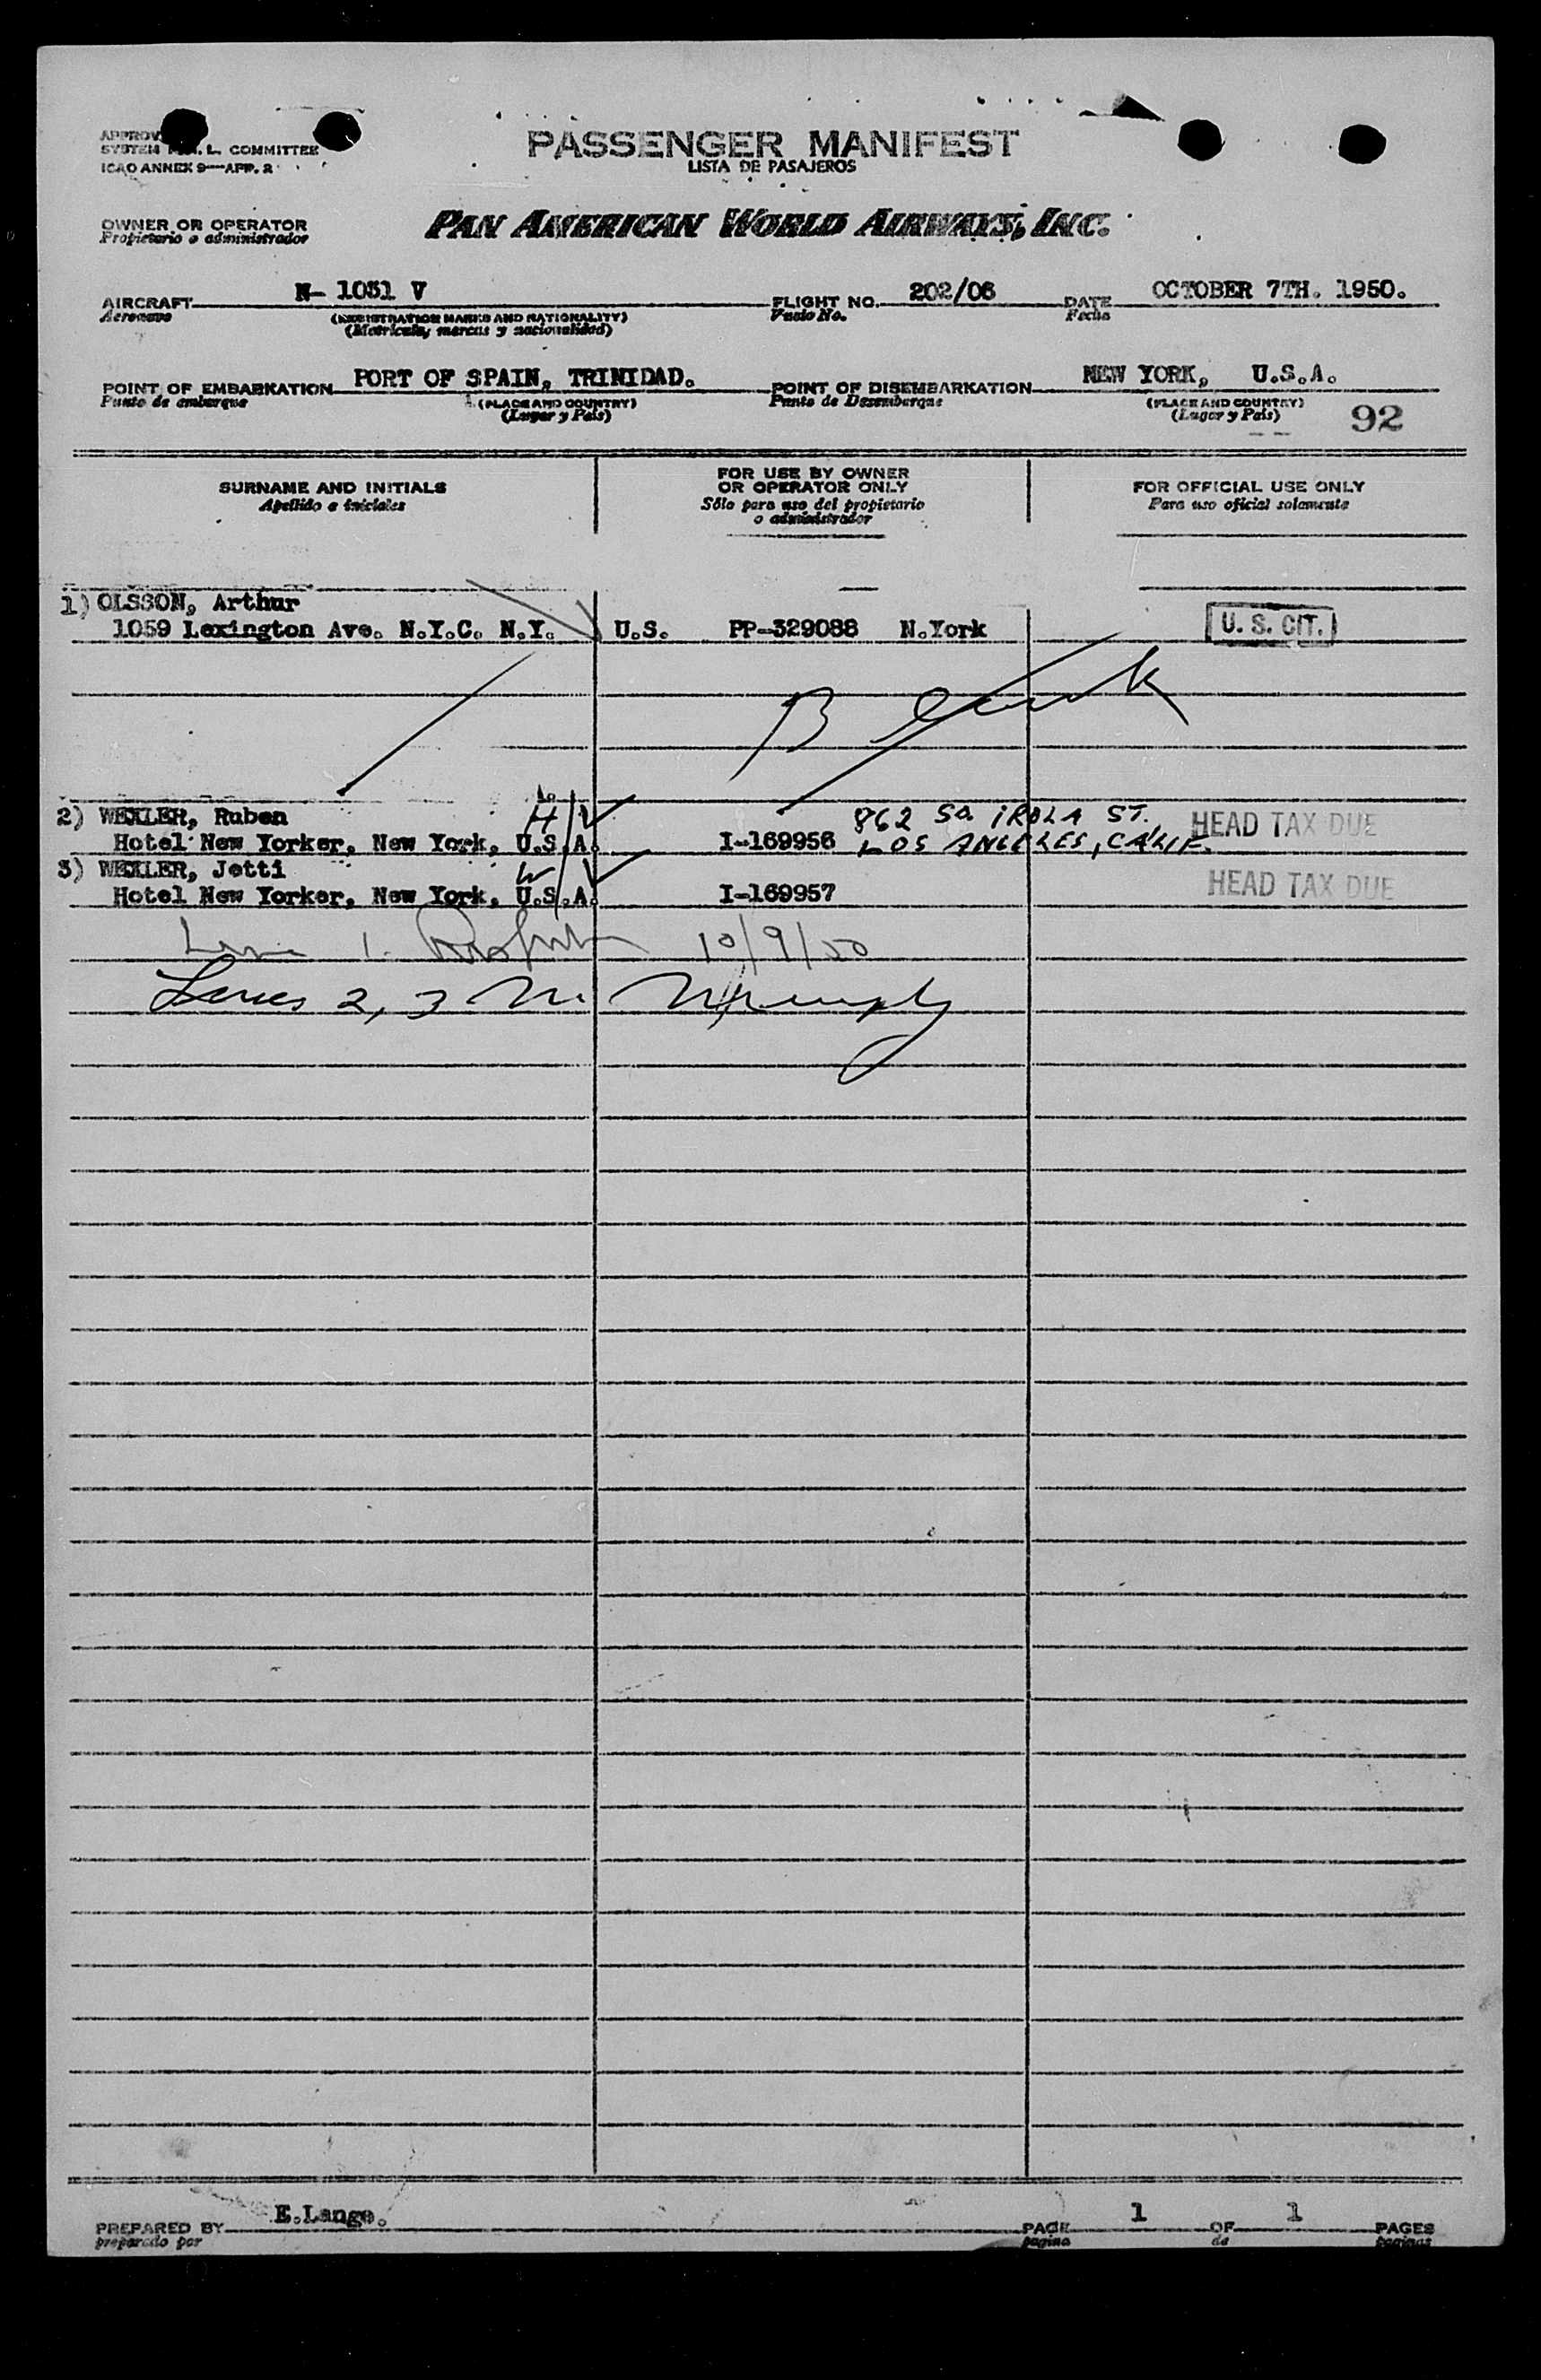 APPROV
SYSTEM L. COMMITTEE
ICAO ANNEX 9—APP. 2
PASSENGER MANIFEST
LISTA DE PASAJEROS
OWNER OR OPERATOR
Propietario o administrador
PAN AMERICAN WORLD AIRWAYS, INC.
AIRCRAFT N- 1031 V FLIGHT NO. 202/06 DATE OCTOBER 7TH. 1950.
Aeronave (REGISTRATION MARKS AND NATIONALITY) Vuelo No. Fecha
(Matricula, marcas y nacionalidad)
POINT OF EMBARKATION PORT OF SPAIN, TRINIDAD. POINT OF DISEMBARKATION NEW YORK, U.S.A.
Punto de embarque (PLACE AND COUNTRY) Punto de Desembarque (PLACE AND COUNTRY)
(Lugar y País) (Lugar y País) 92
SURNAME AND INITIALS
Apellido e iniciales
FOR USE BY OWNER
OR OPERATOR ONLY
Sólo para uso del propietario
o administrador
FOR OFFICIAL USE ONLY
Para uso oficial solamente
1) OLSSON, Arthur
1059 Lexington Ave. N.Y.C. N.Y. U.S. PP-329088 N.York U. S. CIT.
2) WEXLER, Ruben H 862 SO. IROLA ST. HEAD TAX DUE
Hotel New Yorker, New York, U.S.A. I-169956 LOS ANGELES, CALIF.
3) WEXLER, Jetti W HEAD TAX DUE
Hotel New Yorker, New York, U.S.A. I-169957
Line 1. 10/9/50
Lines 2, 3
PREPARED BY E.Lange. PAGE 1 OF 1 PAGES
preparado por pagina de paginas